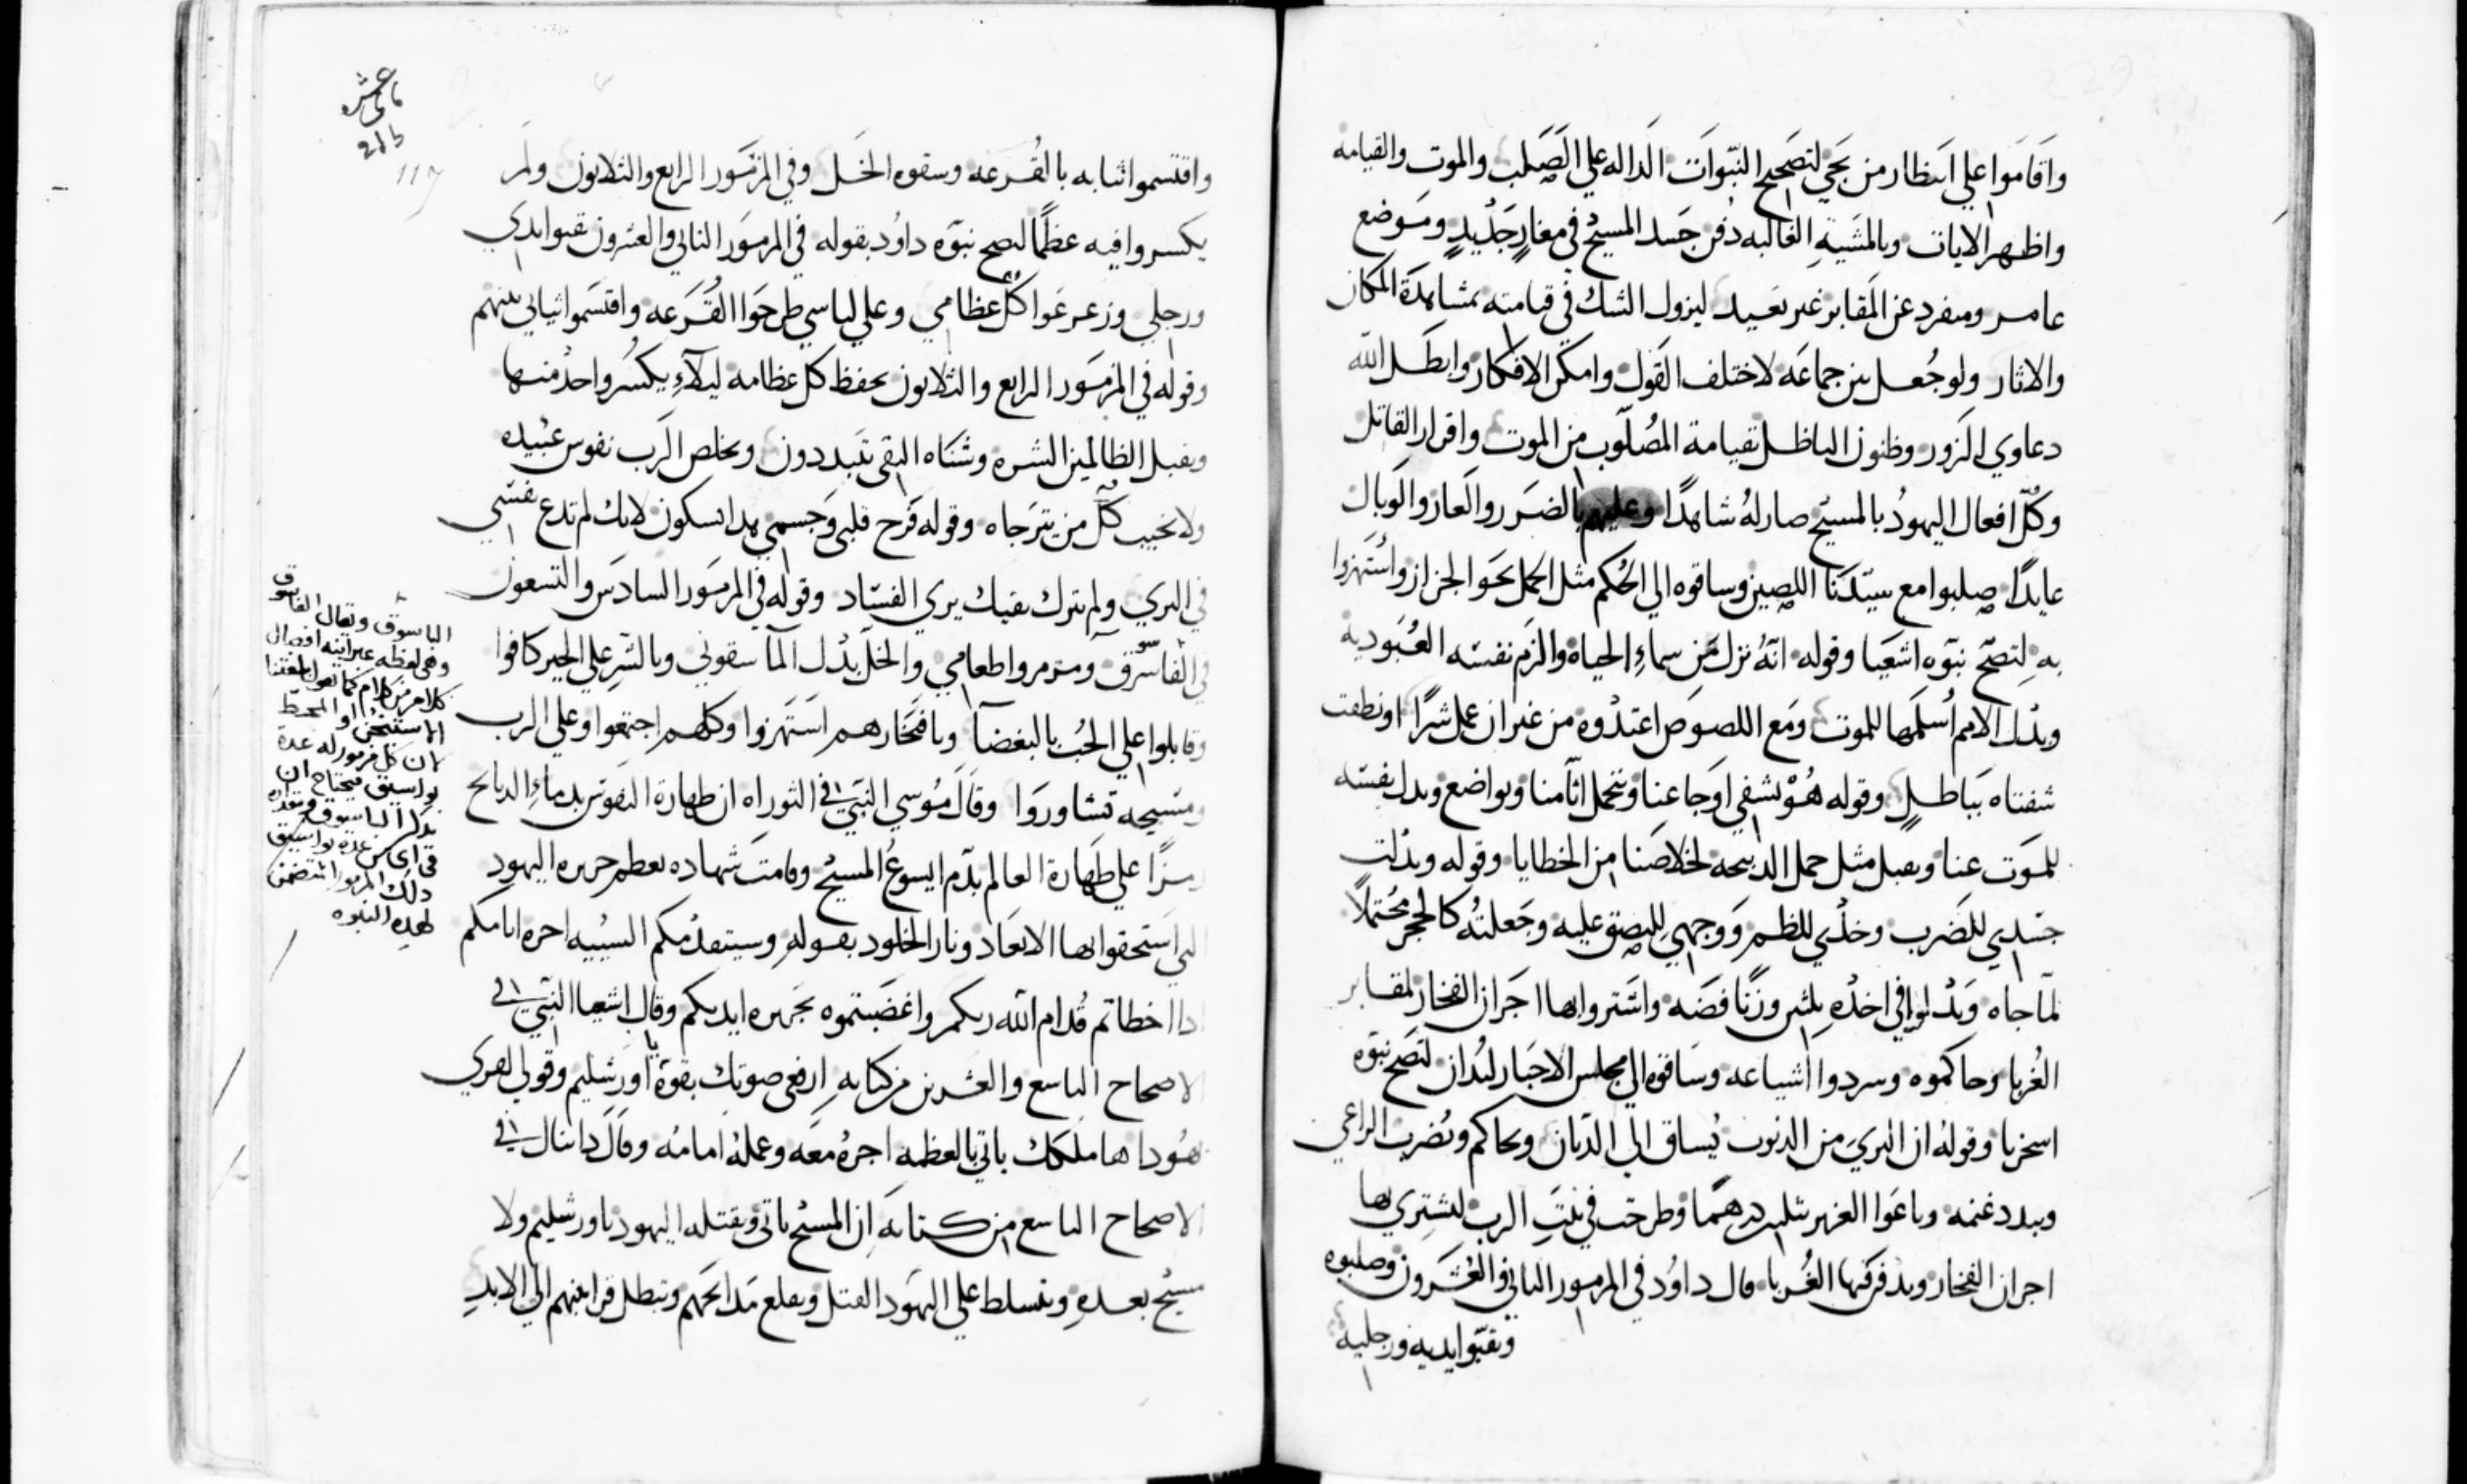 واقاموا علي انتظار من يجي لتصحيح النبوات الداله علي الصلب والموت والقيامه
واظهر الايات وبالمشيه الغالبه دفن جسد المسيح في مغار جديد وموضع
عامر ومنفرد عن المقابر غير بعيد ليزول الشك في قيامته بمشاهدة المكان
والاثار ولو جعل بين جماعه لاختلف القول وامكن الافكار وابطل الله
دعاوي الزور وظنون الباطل بقيامة المصلوب من الموت واقرار القاتل
وكل افعال اليهود بالمسيح صار له شاهدًا وعليهم بالضرر والعار والوبال
عايدًا صلبوا مع سيدنا اللصين وساقوه الي الحكم مثل الحمل نحو الجزار واستهزوا
به لتصح نبوه اشعيا وقوله انه نزل من سماء الحياه والزم نفسه العبوديه
وبدل الامم اسلمها للموت ومع اللصوص اعتدوه من غير ان عمل شرًا او نطقت
شفتاه بباطل وقوله هو يشفي اوجاعنا ويتحمل اثامنا ويواضع وبدل نفسه
للموت عنا ويقبل مثل حمل الدبيحه لخلاصنا من الخطايا وقوله وبدلت
جسدي للضرب وخدي للظم ووجهي للبصق عليه وجعلته كالحجر محتملًا
لما جاه وبدلوا في اخده بلثين وزنًا فضه واشتروا بها اجران الفخار لمقابر
الغربا وحاكموه وسردوا اشياعه وساقوه الي مجلس الاحبار ليدان لتصح نبوه
اسخريا وقوله ان البري من الدنوب يساق الي الديان ويحاكم ويضرب الراعي
ويبدد غنمه وباعوا العزيز بثلثين درهمًا وطرحت في بيت الرب لتشتري بها
اجران الفخار ويدفن فيها الغربا قال داود في المزمور الثاني والعشرون وصلبوه
وثقبوا يديه ورجليه
واقتسموا ثيابه بالقرعه وسقوه الخل وفي المزمور الرابع والثلاثون ولم
يكسروا فيه عظمًا لتصح نبوه داود بقوله في المزمور الثاني والعشرون ثقبوا يدي
ورجلي وزعزعوا كل عظامي وعلي لباسي طرحوا القرعه واقتسموا ثيابي بينهم
وقوله في المزمور الرابع والثلاثون يحفظ كل عظامه ليلاء يكسر واحد منها
ويقبل الظالمين الشره وشناه التقي يتبددون ويخلص الرب نفوس عبيده
ولا يخيب كل من يترجاه وقوله فرح قلبي وجسمي بدا بسكون لانك لم تدع نفسي
في البري ولم تترك نقيك يري الفساد وقوله في المزمور السادس والتسعون
في الفاسوق ومرمروا طعامي والخل بدل الما سقوني وبالشر علي الخير كافوا
وقابلوا علي الحب بالبغضا وبافتخارهم استهزوا وكلهم اجتمعوا وعلي الرب
ومسيحه تشاوروا وقال موسي النبي في التوراه ان طهارة النفوس بدماء الدبايح
رمزًا علي طهارة العالم بدم ايسوع المسيح وقامت شهاده بعظم جريره اليهود
التي استحقوا بها الابعاد ونار الخلود بقوله وسيتقدمكم السبيه اخره ايامكم
ادا اخطاتم قدام الله ربكم واغضبتموه بجريره ايديكم وقال اشعيا النبي في
الاصحاح التاسع والعشرين من كتابه ارفعي صوتك بقوة يا اورشليم وقولي لقري
هودا ها ملكك ياتي بالعظمه اجره معه وعمله امامه وقال دانيال في
الاصحاح التاسع من كتابه ان المسيح ياتي ويقتله اليهود باورشليم ولا
مسيح بعده ويتسلط علي اليهود القتل ويقلع مدابحهم وتبطل قرابينهم الي الابد
الباسوق ويقال الفاسوق
وهي لفظه عبرانيه
كلام من كلام كما نقول بلغتنا
الاستفتاح او المحط
لان كل مزمور له عدة
بواسيق فيحتاج ان
يدكر الباسوق وتعداده
في اي من عدة بواسيق
دلك المزمور
لهده النبوه